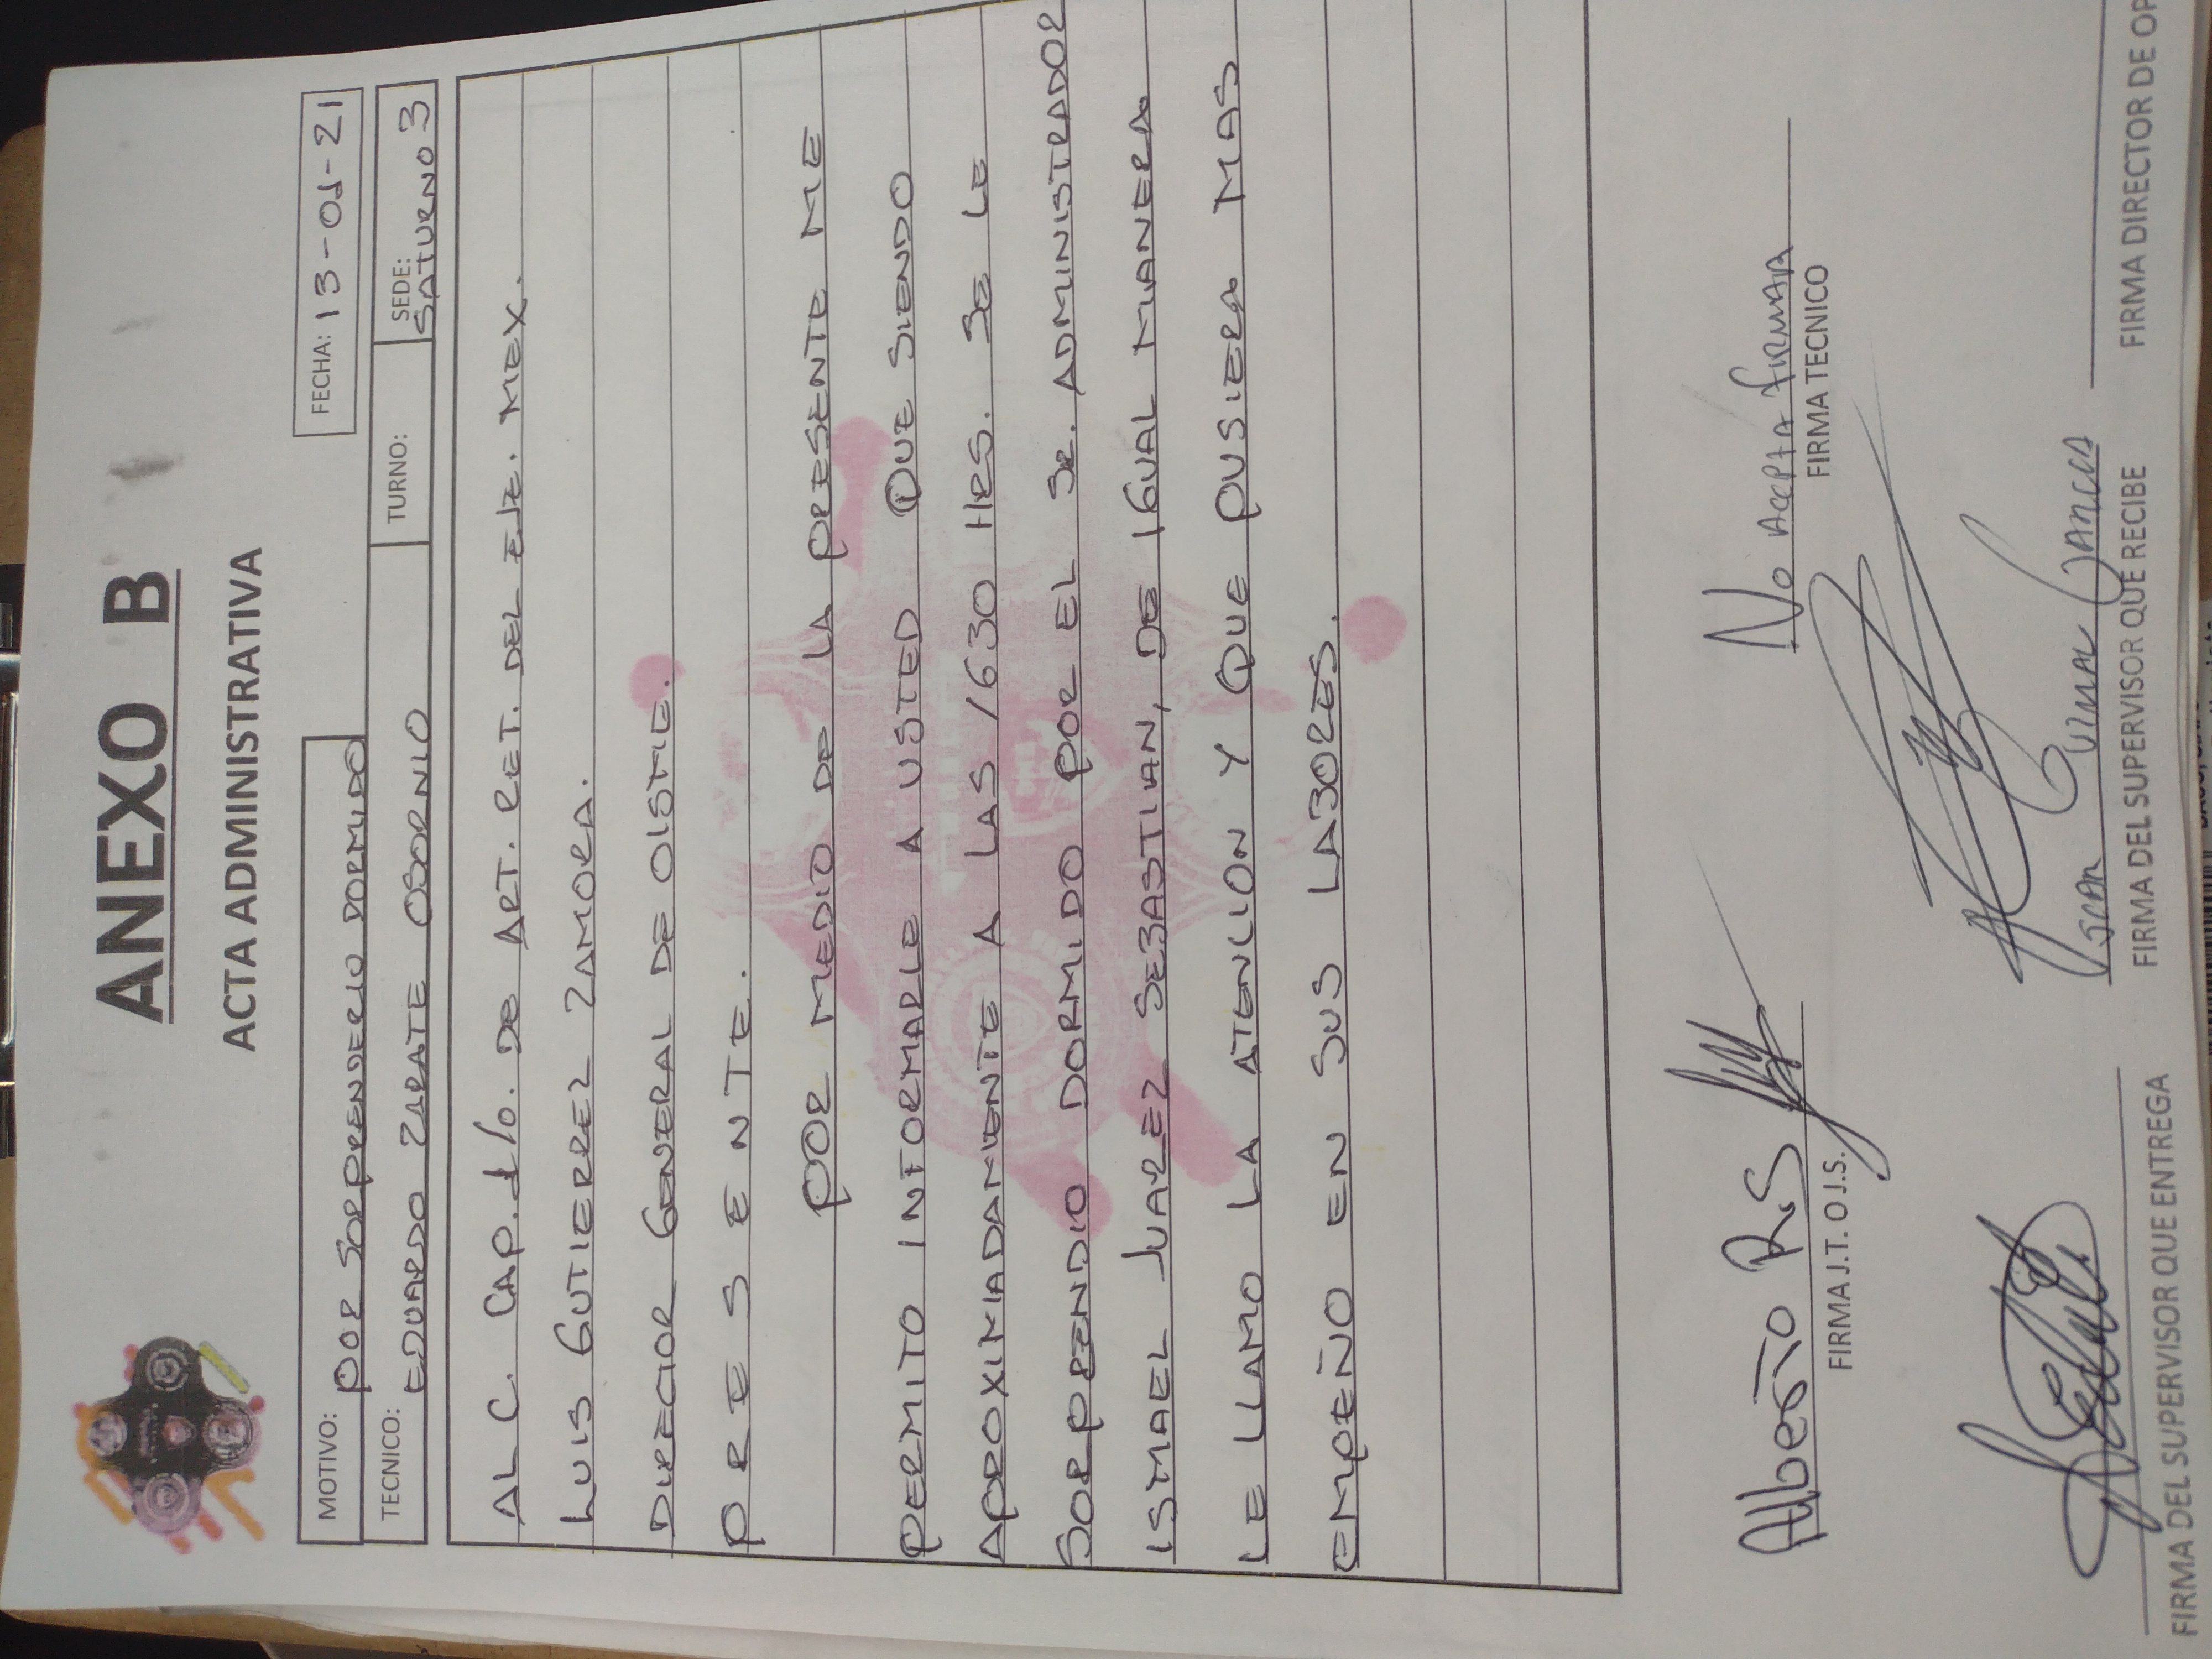 ANEXO B
ACTA ADMINISTRATIVA
MOTIVO: POR SORPRENDERLO DORMIDO
FECHA: 13-01-21
TECNICO: EDUARDO ZARATE OSORNIO
TURNO:
SEDE: SATURNO 3
AL C. CAP. 1/o. DE ART. RET. DEL EJE. MEX.
LUIS GUTIERREZ ZAMORA.
DIRECTOR GENERAL DE OISME.
P R E S E N T E.
POR MEDIO DE LA PRESENTE ME
PERMITO INFORMARLE A USTED QUE SIENDO
APROXIMADAMENTE A LAS 1630 HRS. SE LE
SORPRENDIO DORMIDO POR EL SR. ADMINISTRADOR
ISMAEL JUAREZ SEBASTIAN, DE IGUAL MANERA
LE LLAMO LA ATENCION Y QUE PUSIERA MAS
EMPEÑO EN SUS LABORES.
Alberto R.S
No ACEPTA FIRMAR
FIRMA J.T. O J.S.
FIRMA TECNICO
GARCIA
FIRMA DEL SUPERVISOR QUE ENTREGA
FIRMA DEL SUPERVISOR QUE RECIBE
FIRMA DIRECTOR DE OP